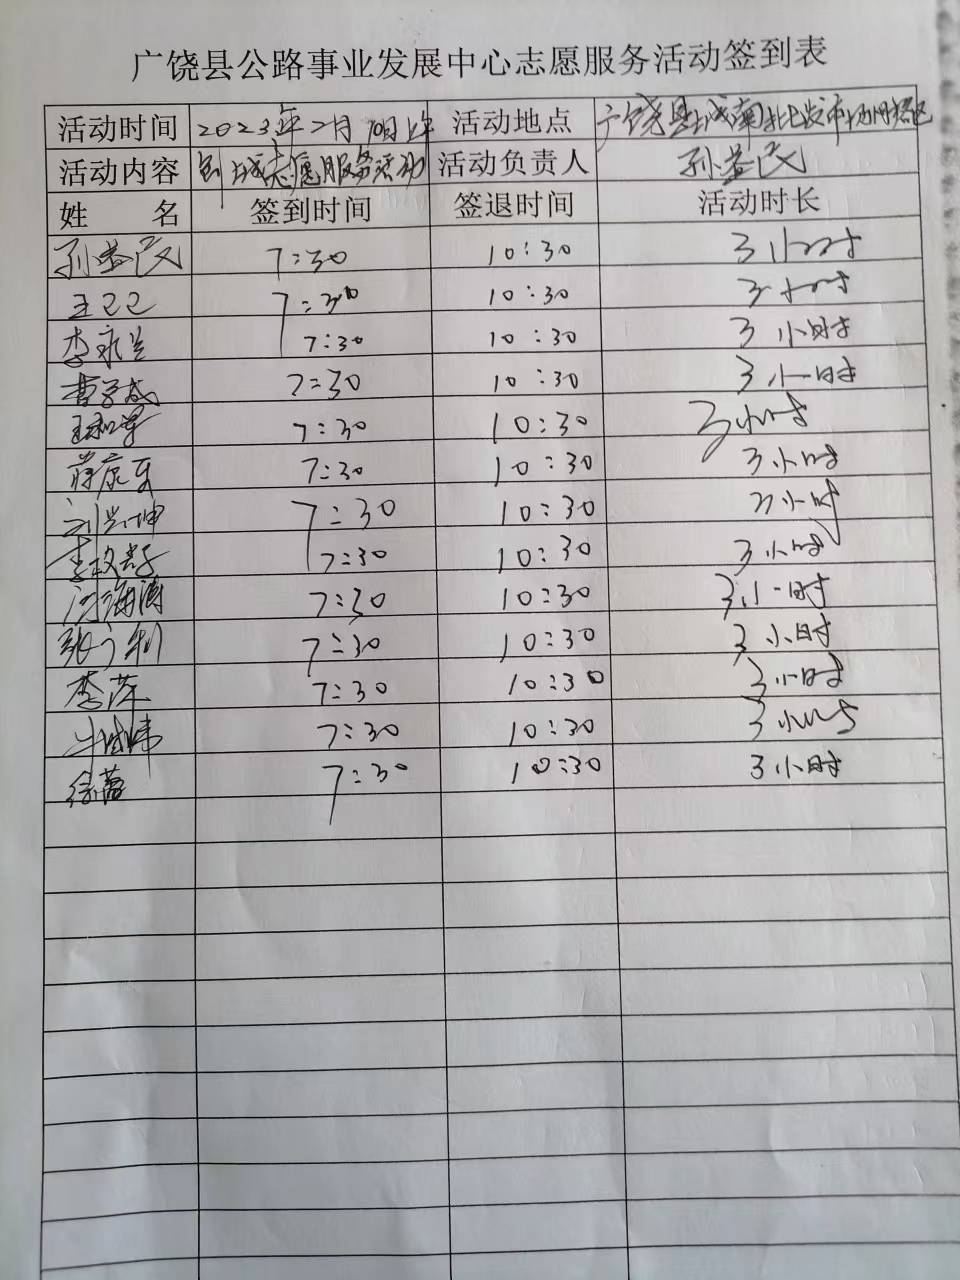 广饶县公路事业发展中心志愿服务活动签到表
活动时间 2023年2月10日上午 活动地点 广饶县城南批发市场网格区
活动内容 创城志愿服务活动 活动负责人 孙益民
姓 名 签到时间 签退时间 活动时长
孙益民 7:30 10:30 3小时
王己己 7:30 10:30 3小时
李永兰 7:30 10:30 3小时
曹学成 7:30 10:30 3小时
7:30 10:30 3小时
蒋庆东 7:30 10:30 3小时
刘兴坤 7:30 10:30 3小时
李玫 7:30 10:30 3小时
海涛 7:30 10:30 3小时
张广利 7:30 10:30 3小时
李萍 7:30 10:30 3小时
7:30 10:30 3小时
徐蕾 7:30 10:30 3小时